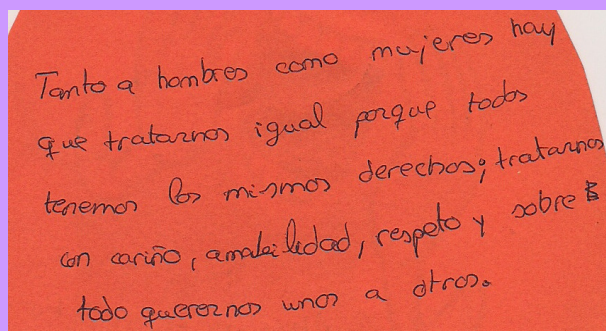 Tanto a hombres como mujeres hay
que tratarnos igual porque todos
tenemos los mismos derechos; tratarnos
con cariño, amabilidad, respeto y sobre
todo querernos unos a otros.